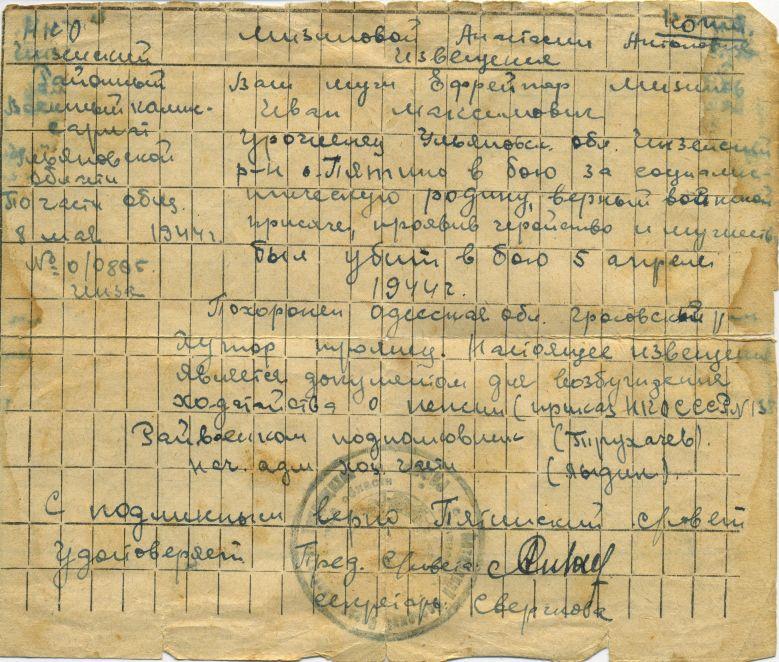 копия.
НКО
Инзенский
Районный
Военный комис-
сариат
Ульяновской
области
По части общ.
8 мая 1944г.
№ 0/0865.
Инза
Мизиновой Анастасии
Извещение
Ваш муж Ефрейтор
Иван Максимович
Уроженец Ульяновск. обл. Инзенский
р-н с. Пятино в бою за социалис-
тическую родину, верный воинской
присяге, проявив геройство и мужеств
был убит в бою 5 апреля
1944г.
Похоронен Одесская обл. Гросовский
Хутор Троянец. Настоящее извещени
является документом для возбуждения
ходатайства о пенсии (приказ НКО СССР №
Райвоенком подполковник (Трухачев).
Нач. адм. хоз. части (Лыдин).
С подлинным верно Пятинский совет
удостоверяет Пред. Совета:
Секретарь: